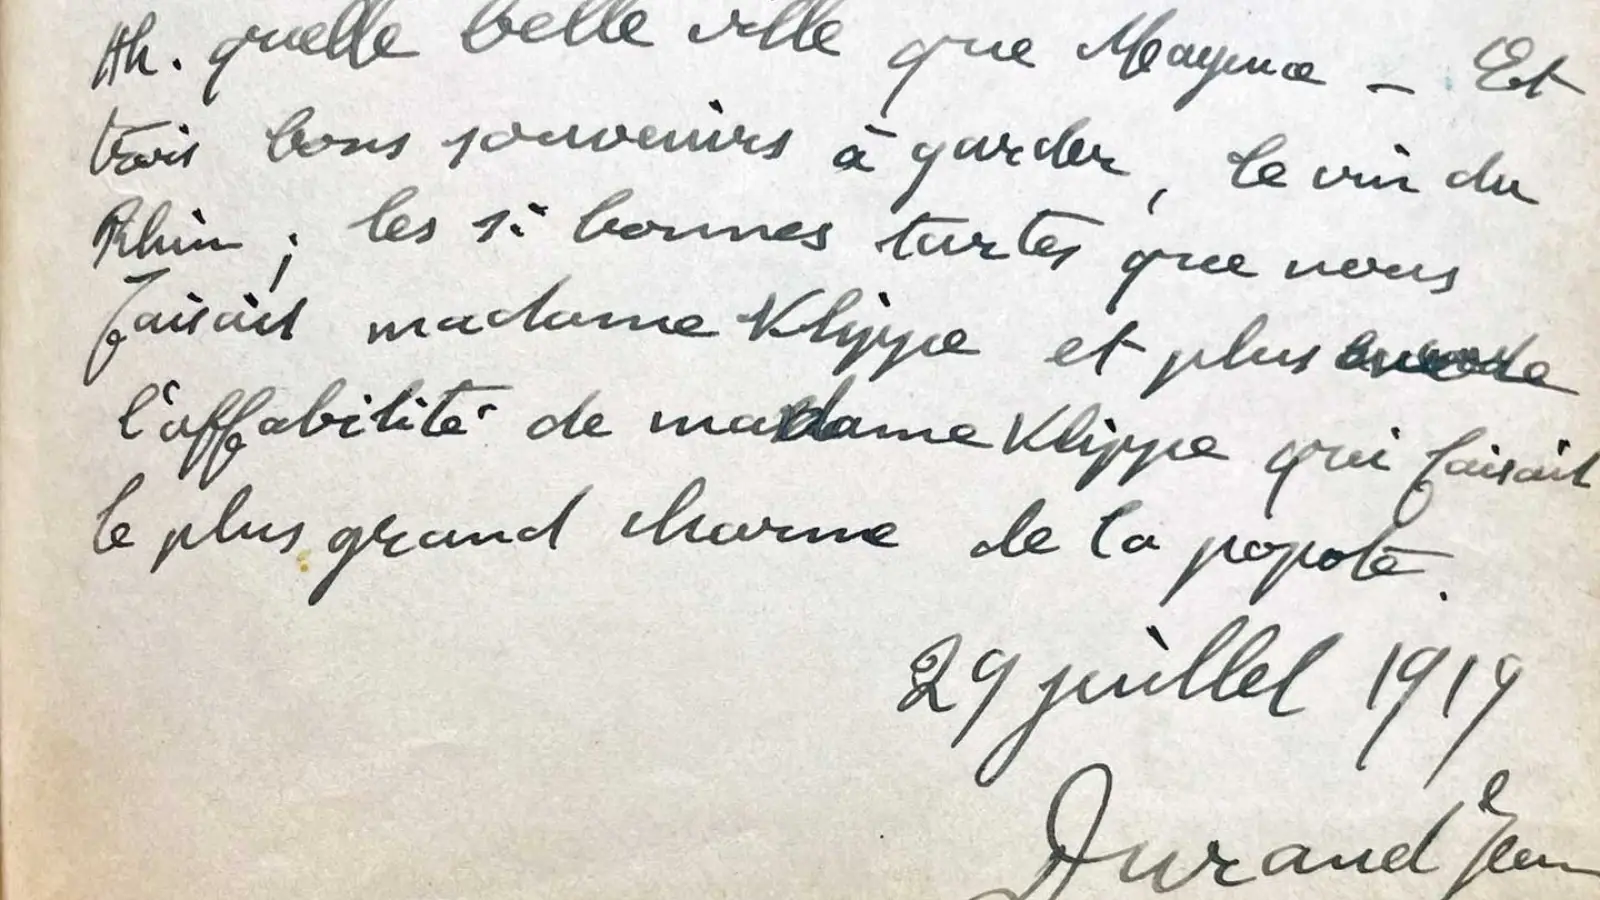 Ah. quelle belle ville que Mayence — Et
trois bons souvenirs à garder, le vin du
Rhin ; les si bonnes tartes que nous
faisait madame Klippe et plus encore
l'affabilité de madame Klippe qui faisait
le plus grand charme de la popote.
29 juillet 1919
Durand Jean